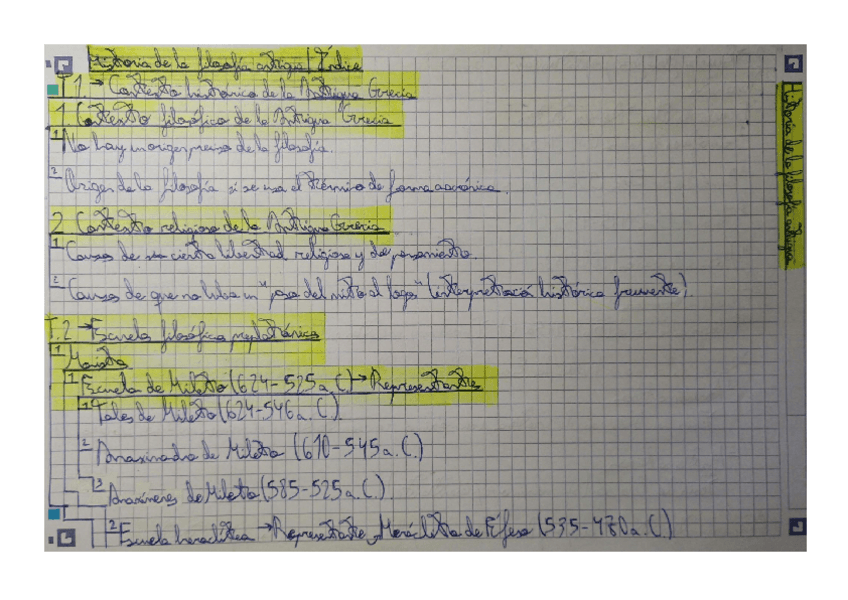 Historia de la filosofía antigua/Índice
T.1.→Contexto histórico de la Antigua Grecia
1 Contexto filosófico de la Antigua Grecia
1 No hay un origen preciso de la filosofía.
2 Origen de la filosofía si se usa el término de forma
2 Contexto religioso de la Antigua Grecia
1 Causas de cierta libertad religiosa y de pensamiento.
2 Causas de que no hubo un "paso del mito al logos" (interpretación histórica frecuente).
T.2→Escuelas filosóficas preplatónicas
1 Monista
1 Escuela de Mileto (624-525 a.C)→Representantes
1 Tales de Mileto (624-546 a.C.)
2 de Mileto (610-545 a.C.)
3 Anaxímenes de Mileto (585-525 a.C.)
2 Escuela heraclítea →Representante Heráclito de Éfeso (535-470 a.C.)
Historia de la filosofía antigua